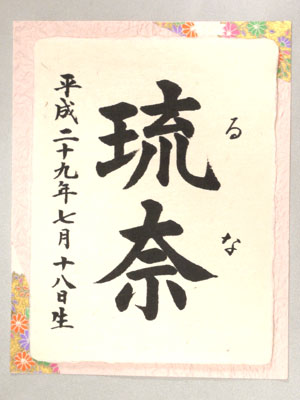 るな
琉奈
平成二十九年七月十八日生